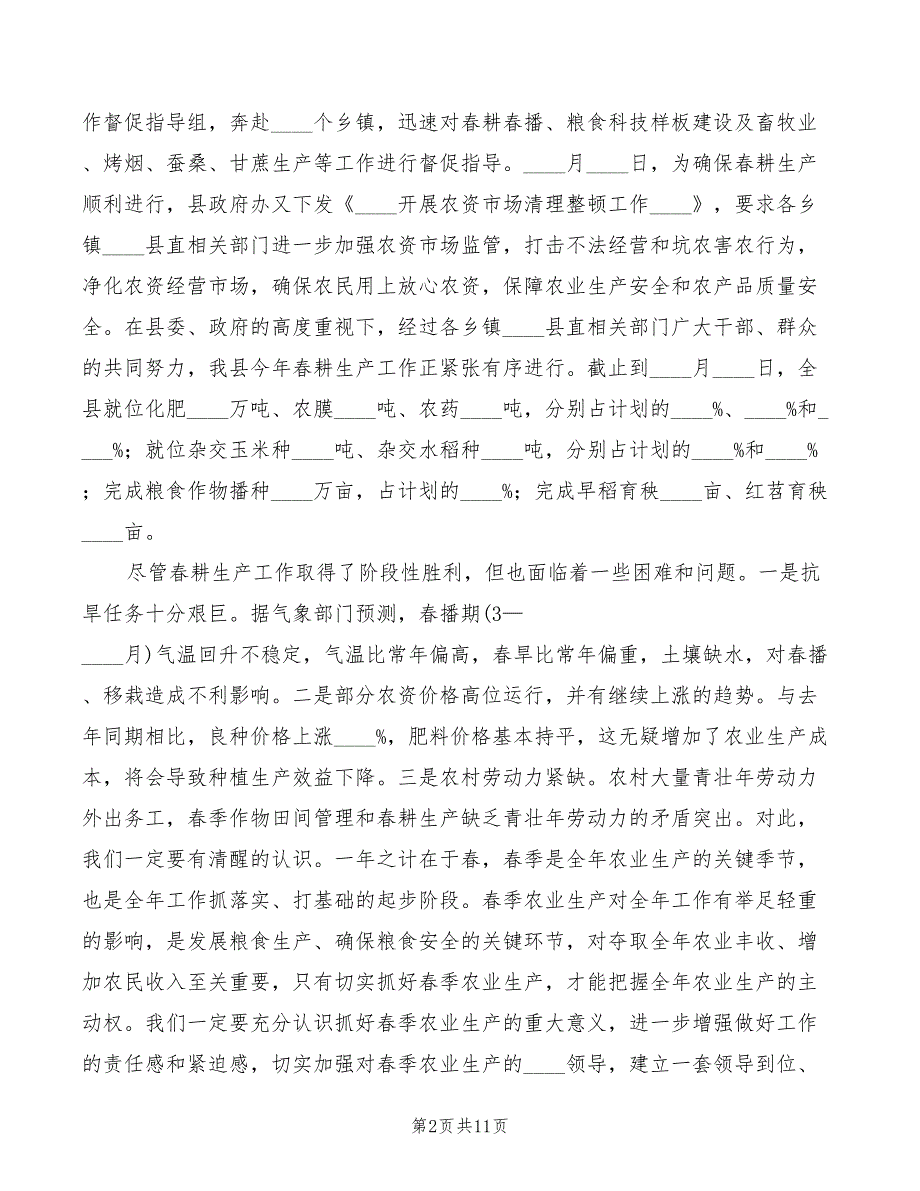 作督促指导组，奔赴____个乡镇，迅速对春耕春播、粮食科技样板建设及畜牧业
、烤烟、蚕桑、甘蔗生产等工作进行督促指导。____月____日，为确保春耕生产
顺利进行，县政府办又下发《____开展农资市场清理整顿工作____》，要求各乡
镇____县直相关部门进一步加强农资市场监管，打击不法经营和坑农害农行为，
净化农资经营市场，确保农民用上放心农资，保障农业生产安全和农产品质量安
全。在县委、政府的高度重视下，经过各乡镇____县直相关部门广大干部、群众
的共同努力，我县今年春耕生产工作正紧张有序进行。截止到____月____日，全
县就位化肥____万吨、农膜____吨、农药____吨，分别占计划的____%、____%和_
___%；就位杂交玉米种____吨、杂交水稻种____吨，分别占计划的____%和____%
；完成粮食作物播种____万亩，占计划的____%；完成早稻育秧____亩、红苕育秧
____亩。
尽管春耕生产工作取得了阶段性胜利，但也面临着一些困难和问题。一是抗
旱任务十分艰巨。据气象部门预测，春播期(3—
____月)气温回升不稳定，气温比常年偏高，春旱比常年偏重，土壤缺水，对春播
、移栽造成不利影响。二是部分农资价格高位运行，并有继续上涨的趋势。与去
年同期相比，良种价格上涨____%，肥料价格基本持平，这无疑增加了农业生产成
本，将会导致种植生产效益下降。三是农村劳动力紧缺。农村大量青壮年劳动力
外出务工，春季作物田间管理和春耕生产缺乏青壮年劳动力的矛盾突出。对此，
我们一定要有清醒的认识。一年之计在于春，春季是全年农业生产的关键季节，
也是全年工作抓落实、打基础的起步阶段。春季农业生产对全年工作有举足轻重
的影响，是发展粮食生产、确保粮食安全的关键环节，对夺取全年农业丰收、增
加农民收入至关重要，只有切实抓好春季农业生产，才能把握全年农业生产的主
动权。我们一定要充分认识抓好春季农业生产的重大意义，进一步增强做好工作
的责任感和紧迫感，切实加强对春季农业生产的____领导，建立一套领导到位、
第2页共11页